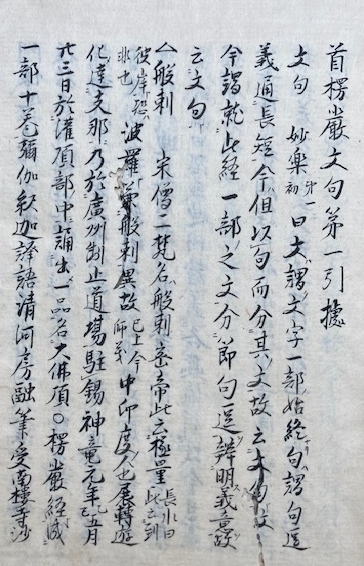 首楞嚴文句第一引據
文句 妙樂初卅一曰文謂文字一部始終句謂句逗
義通長短今但以句而分其文故云文句文
今謂就此經一部之文分節句逗辨明義意故
云文句
般剌 宋僧二梵名般剌密帝此云極量長水曰此云到
彼岸恐非也 波羅 般剌異故已上今師義 中印度人也展轉遊
化達支那乃於廣州制止道場駐錫神竜元年乙巳五月
廿三日於灌頂部中誦出一品名大佛頂〇楞嚴經 
一部十卷彌伽釈迦譯語清河房融筆受南樓寺沙